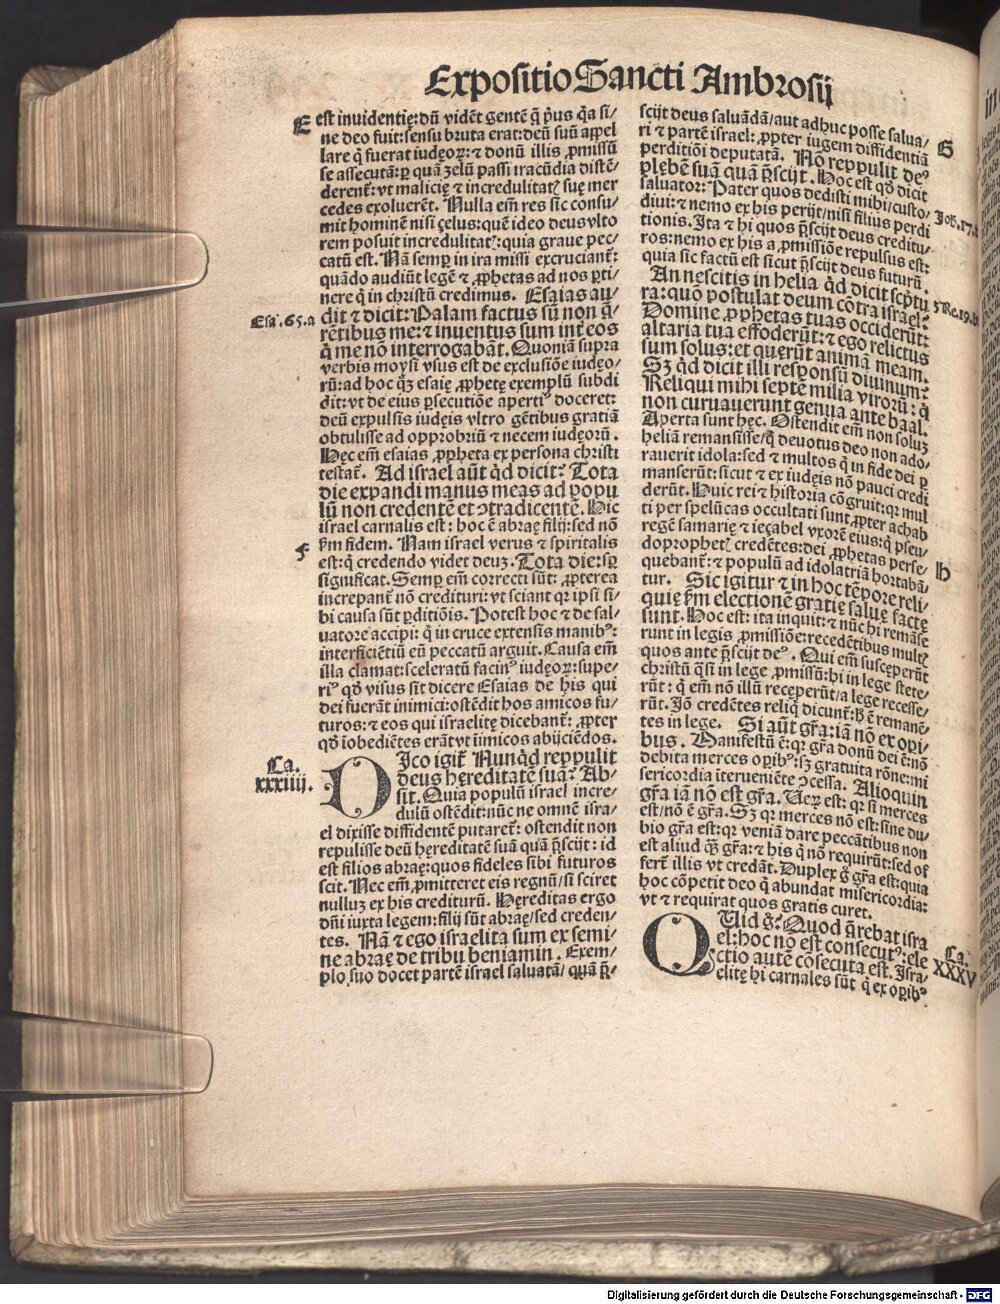 Expositio Sancti Ambrosij
E
est inuidentię: dũ vidẽt gentẽ q̃ pͥus q̃a si/
ne deo fuit: sensu bruta erat: deũ suũ appel
lare q̃ fuerat iudęoꝝ: ⁊ donũ illis ꝓmissũ
se assecutã: ꝑ quã zelũ passi iracũdia distẽ/
derent̃: vt malicię ⁊ incredulitatꝭ suę mer
cedes exoluerẽt. Nulla em̃ res sic consu/
mit hominẽ nisi çelus: quẽ ideo deus vlto
rem posuit incredulitatꝭ: quia graue pec/
catũ est. Nã semꝑ in ira missi excruciant̃:
quãdo audiũt legẽ ⁊ ꝓphetas ad nos ꝑti/
nere q̃ in christũ credimus. Esaias au/
Esa. 65. a
dit ⁊ dicit: Palam factus sũ non q̃/
rẽtibus me: ⁊ inuentus sum int̃ eos
q̃ me nõ interrogabãt. Quoniã supra
verbis moysi vsus est de exclusiõe iudęo/
rũ: ad hoc qꝫ esaię ꝓphetę exemplũ subdi
dit: vt de eius ꝑsecutiõe apertiꝰ doceret:
deũ expulsis iudęis vltro gẽtibus gratiã
obtulisse ad opprobriũ ⁊ necem iudęorũ.
Hęc em̃ esaias ꝓpheta ex persona christi
testat̃. Ad israel aũt q̃d dicit? Tota
die expandi manus meas ad popu
lũ non credentẽ et ↄtradicentẽ. Hic
israel carnalis est: hoc ẽ abraę filij: sed nõ
F
ẜm fidem. Nam israel verus ⁊ spiritalis
est: q̃ credendo videt deuꝫ. Tota die: sꝑ
significat. Semꝑ em̃ correcti sũt: ꝓpterea
increpant̃ nõ credituri: vt sciant qꝛ ipsi si/
bi causa sũt ꝑditiõis. Potest hoc ⁊ de sal/
uatore accipi: q̃ in cruce extensis manibꝰ:
interficiẽtiũ eũ peccatũ arguit. Causa em̃
illa clamat: sceleratũ facinꝰ iudęoꝝ: supe/
riꝰ qđ visus sit dicere Esaias de his qui
dei fuerãt inimici: ostẽdit hos amicos fu/
turos: ⁊ eos qui israelitę dicebant̃: ꝓpter
qđ iobediẽtes erãt vt iimicos abijciẽdos.
Ca.
xxxiiij.
DIco igit̃ Nunq̃d reppulit
deus hęreditatẽ suã? Ab/
sit. Quia populũ israel incre/
dulũ ostẽdit: nũc ne omnẽ isra/
el dixisse diffidentẽ putaret̃: ostendit non
repulisse deũ hęreditatẽ suã quã p̃scijt: id
est filios abraę: quos fideles sibi futuros
scit. Nec em̃ ꝓmitteret eis regnũ/ si sciret
nulluꝫ ex his crediturũ. Hęreditas ergo
dñi iuxta legem: filij sũt abraę/ sed creden/
tes. Nã ⁊ ego israelita sum ex semi/
ne abraę de tribu beniamin. Exem/
plo suo docet partẽ israel saluatã/ quã p̃/
scijt deus saluãdã/ aut adhuc posse salua/
G
ri ⁊ partẽ israel: ꝓpter iugem diffidentiã
perditiõi deputatã. Nõ reppulit deꝰ
plębẽ suã quã p̃scijt. Hoc est qđ dicit
saluator: Pater quos dedisti mihi/ custo/
Joh. 17.
diui: ⁊ nemo ex his perijt/ nisi filius perdi
tionis. Ita ⁊ hi quos p̃scijt deus creditu/
ros: nemo ex his a ꝓmissiõe repulsus est:
quia sic factũ est sicut p̃scijt deus futurũ.
An nescitis in helia q̃d dicit sc̃ptu
ra: quõ postulat deum cõtra israel?
3. Re. 19.
Domine ꝓphetas tuas occiderũt:
altaria tua effoderũt: ⁊ ego relictus
sum solus: et querũt animã meam.
Sꝫ q̃d dicit illi respõsũ diuinum?
Reliqui mihi septẽ milia virorũ: q̃
non curuauerunt genua ante baal.
Aperta sunt hęc. Ostendit em̃ non soluꝫ
heliã remansisse/ q̃ deuotus deo non ado/
rauerit idola: sed ⁊ multos q̃ in fide dei ꝑ
manserũt: sicut ⁊ ex iudęis nõ pauci credi
derũt. Huic rei ⁊ historia cõgruit: qꝛ mul
ti per spelũcas occultati sunt ꝓpter achab
regẽ samarię ⁊ ieçabel vxorẽ eius: q̃ pseu/
doprophetꝭ credẽtes: dei ꝓphetas perse/
H
quebant̃: ⁊ populũ ad idolatriã hortabã/
tur. Sic igitur ⁊ in hoc tẽpore reli/
quię ẜm electionẽ gratię saluę factę
sunt. Hoc est: ita inquit: ⁊ nũc hi remãse
runt in legis ꝓmissiõe: recedẽtibus multꝭ
quos ante p̃scijt deꝰ. Qui em̃ susceperũt
christũ q̃si in lege ꝓmissũ: hi in lege stete/
rũt: q̃ em̃ nõ illũ receperũt/ a lege recesse/
rũt. Jõ credẽtes reliq̃ dicunt̃: h̃ ẽ remanẽ/
tes in lege. Si aũt gr̃a: iã nõ ex opi/
bus. Manifestũ ẽ: qꝛ gr̃a donũ dei ẽ: nõ
debita merces oꝑibꝰ: sꝫ gratuita rõne: mi
sericordia iterueniẽte ↄcessa. Alioquin
gr̃a iã nõ est gr̃a. Ueꝝ est: qꝛ si merces
est/ nõ ẽ gr̃a. Sꝫ qꝛ merces nõ est: sine du/
bio gr̃a est: qꝛ veniã dare peccãtibus non
est aliud q̃ꝫ gr̃a: ⁊ his q̃ nõ requirũt: sed of
fert̃ illis vt credãt. Duplex g̃ gr̃a est: quia
hoc cõpetit deo q̃ abundat misericordia:
vt ⁊ requirat quos gratis curet.
QUid g̃? Quod q̃rebat isra
el: hoc nõ est consecutꝰ: ele
Ca.
XXXV
ctio autẽ cõsecuta est. Isra/
elitę hi carnales sũt q̃ ex oꝑibꝰ
Digitalisierung gefördert durch die Deutsche Forschungsgemeinschaft - DFG